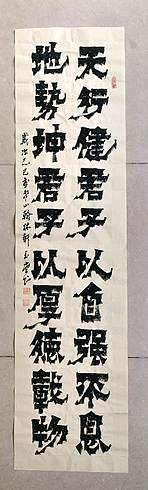 天行健君子以自强不息
地勢坤君子以厚德載物
歲次己巳